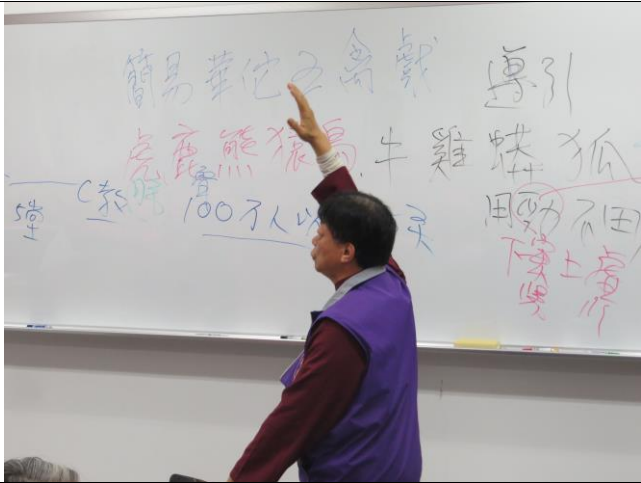 簡易華佗五禽戲 導引
虎鹿熊猿鳥、牛雞蟒狐
5堂 C教 100万人以
用勁不用
下實上虛